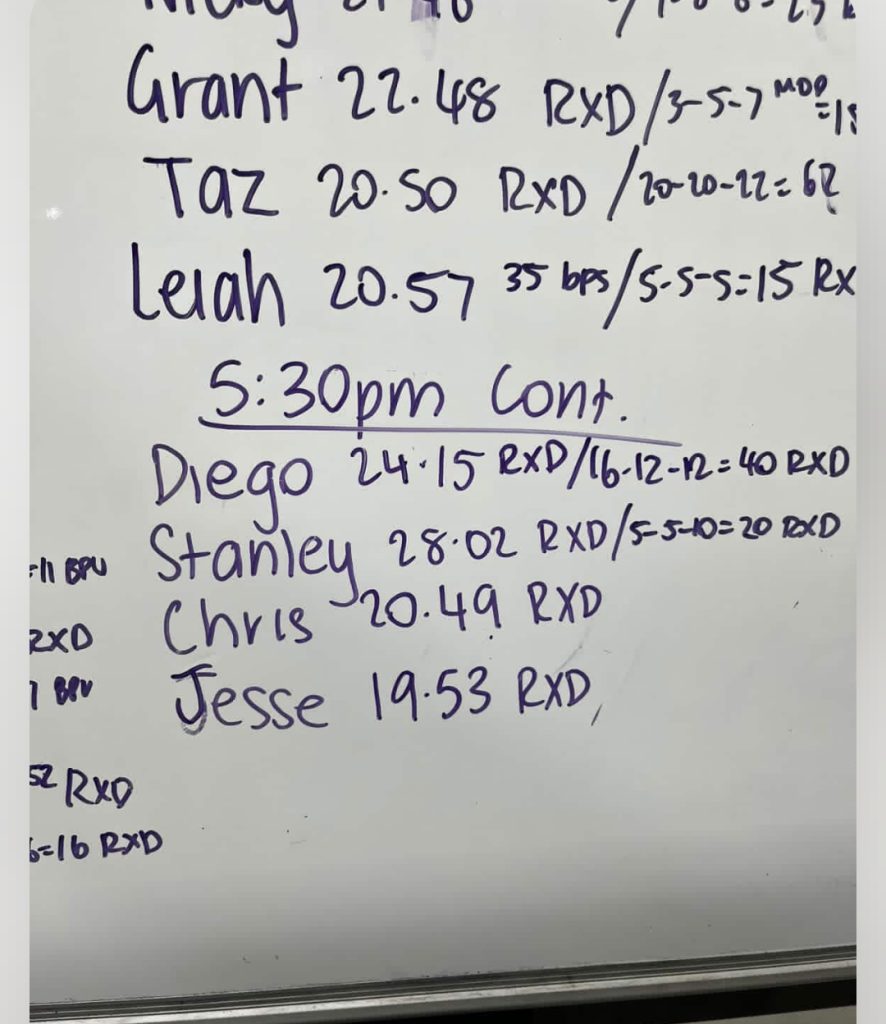 Grant 22.48 RXD/3-5-7 MDP
Taz 20.50 RXD/20-20-22=62
Leiah 20.57 35 bps/5-5-5=15 RX
5:30pm Cont.
Diego 24.15 RXD/16-12-12=40 RXD
Stanley 28.02 RXD/5-5-10=20 RXD
=11 BPU
Chris 20.49 RXD
RXD
Jesse 19.53 RXD
1 BPU
52 RXD
6=16 RXD